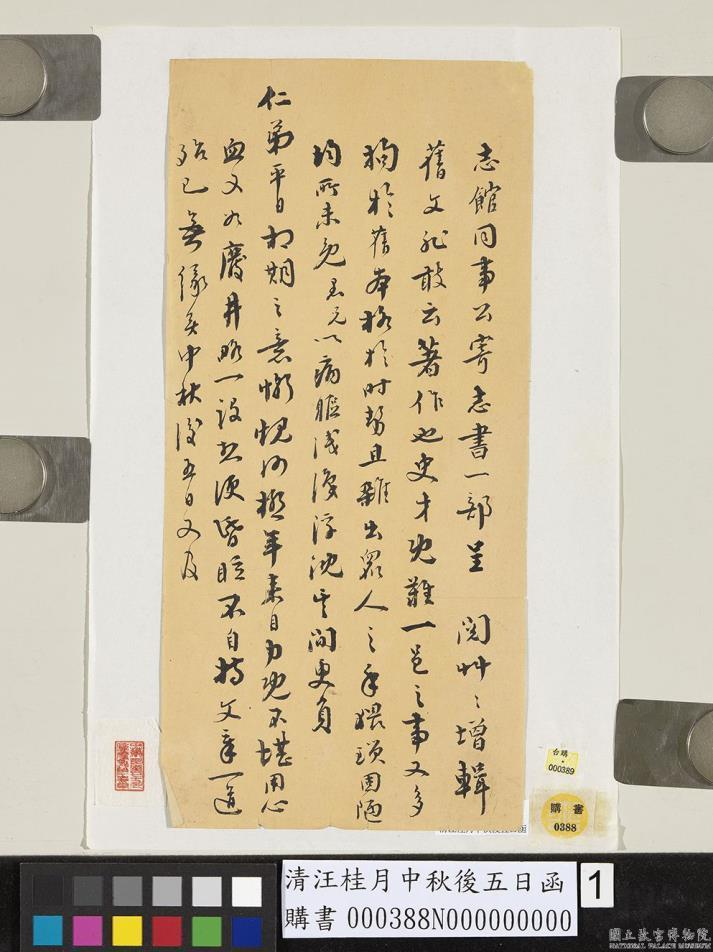 志館同事公寄志書一部呈 閱艸〻增輯
舊文非敢云著作也史才既難一邑之事又多
拘於舊本格於時勢且雜出眾人之手猥瑣固陋
均所未免 以病軀浅沈浮沈其間更負
仁弟平日相期之意慚愧何極年來目力既不堪用心
血又如廢井略一設想便昏眩不自持文章一道
殆已無緣矣中秋後五日又及
台購
000389
購 書
0388
清汪桂月中秋後五日函
購書 000388N000000000
1
國立故宮博物院
NATIONAL PALACE MUSEUM